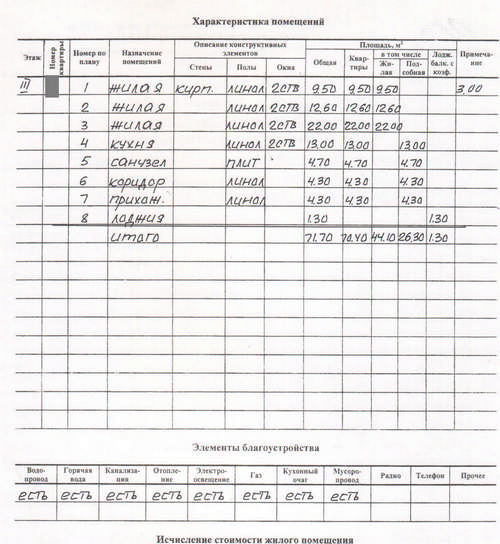 Характеристика помещений
Этаж Номер квартиры Номер по плану Назначение помещений Описание конструктивных элементов Площадь, м² Примеча-ние
Стены Полы Окна Общая Квар-тиры в том числе Лодж. балк. с коэф.
Жи-лая Под-собная
III 1 жилая кирп. линол 2ств 9,50 9,50 9,50 3,00
2 жилая линол 2ств 12,60 12,60 12,60
3 жилая линол 2ств 22,00 22,00 22,00
4 кухня линол 2ств 13,00 13,00 13,00
5 санузел плит 4.70 4.70 4.70
6 коридор линол 4.30 4.30 4.30
7 прихож. линол 4.30 4.30 4.30
8 лоджия 1.30 1.30
итого 71.70 70.40 44.10 26,30 1.30
Элементы благоустройства
Водо-провод Горячая вода Канализа-ция Отопле-ние Электро-освещение Газ Кухонный очаг Мусоро-провод Радио Телефон Прочее
есть есть есть есть есть есть есть есть
Исчисление стоимости жилого помещения